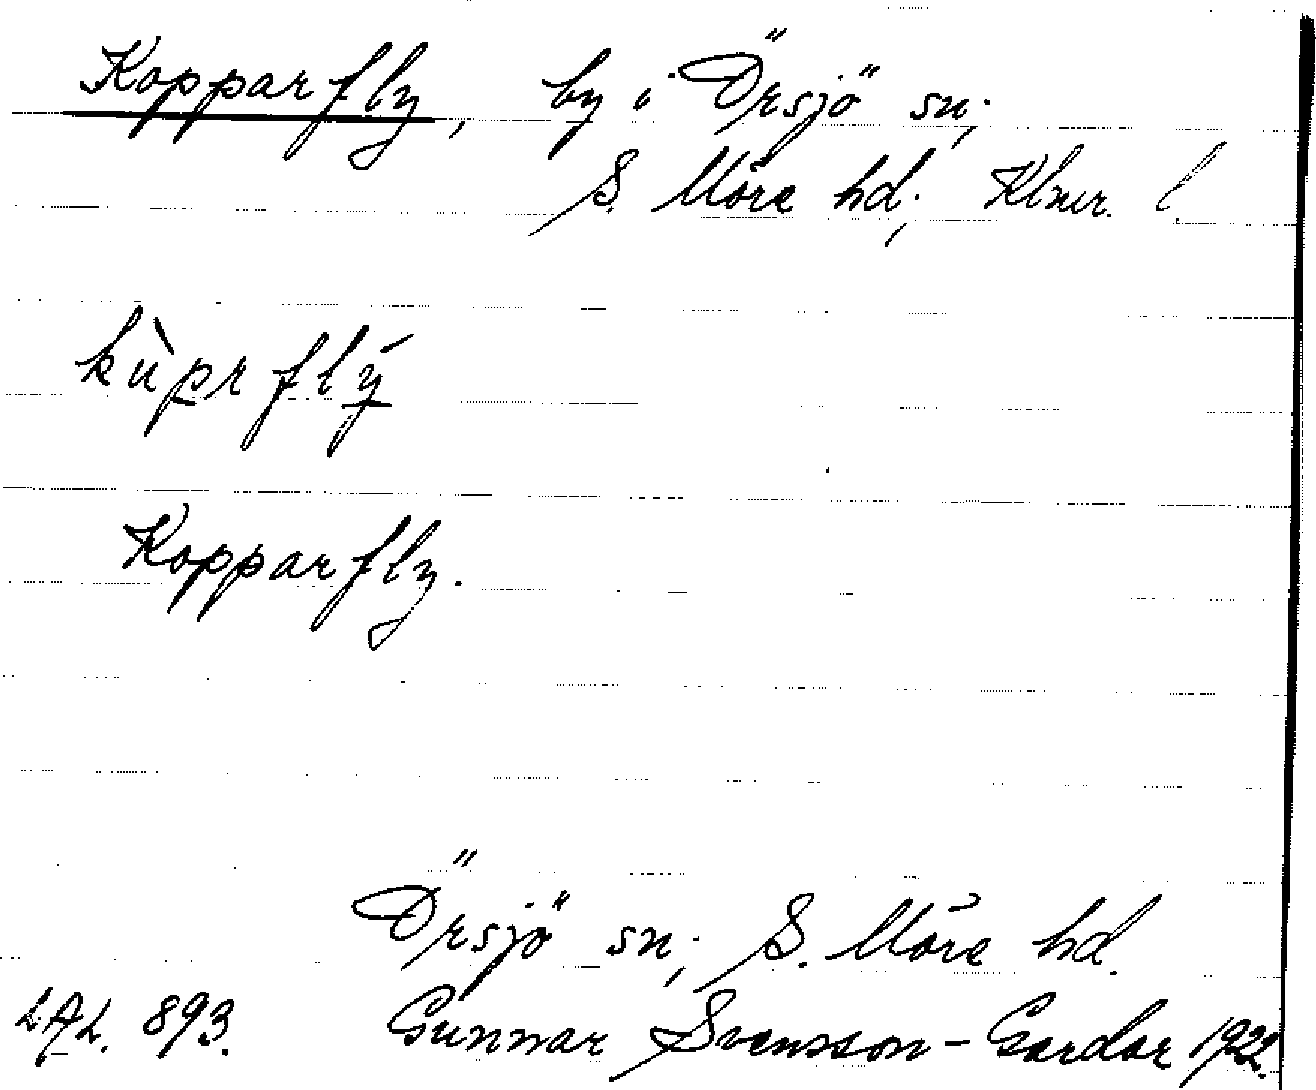 Kopparfly, by i Örsjö sn;
S. Möre hd; Klmr. l.
kùprflý
Kopparfly.
Örsjö sn; S. Möre hd.
LAL. 893. Gunnar Svensson-Gardar 1922.